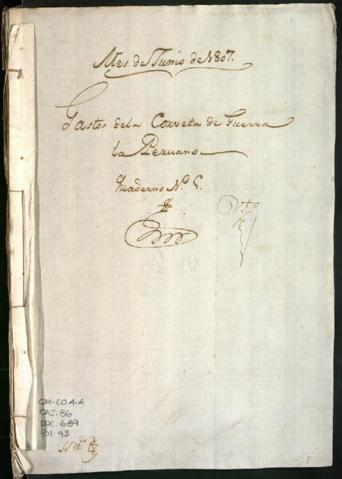 Mes de Junio de 1807.
Gastos dela Corveta de Guerra
la Peruana
Quaderno Nº
GM-CO4-A
CAJ. 86
DOC. 689
FOL. 93